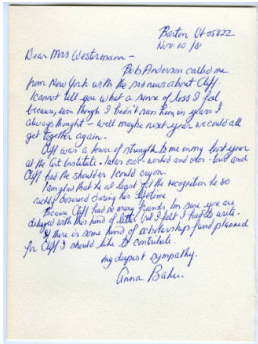 Barton Vt 05822
Nov. 10 /81
Dear Mrs Westermann -
Bob Anderson called me
from New York with the sad news about Cliff.
I cannot tell you what a sense of loss I feel
because, even though I hadn't seen him in years I
always thought - well maybe next year we could all
get together again.
Cliff was a tower of strength to me in my last year
at the Art Institute. and
Cliff had the shoulder I could cry on.
I am glad that he at least got the recognition he so
richly deserved during his lifetime
Because Cliff had so many friends I'm sure you are
deluged with this kind of letter but I felt I had to write.
If there is some kind of scholarship fund planned
for Cliff I should like to contribute.
my deepest sympathy.
Anna Baker